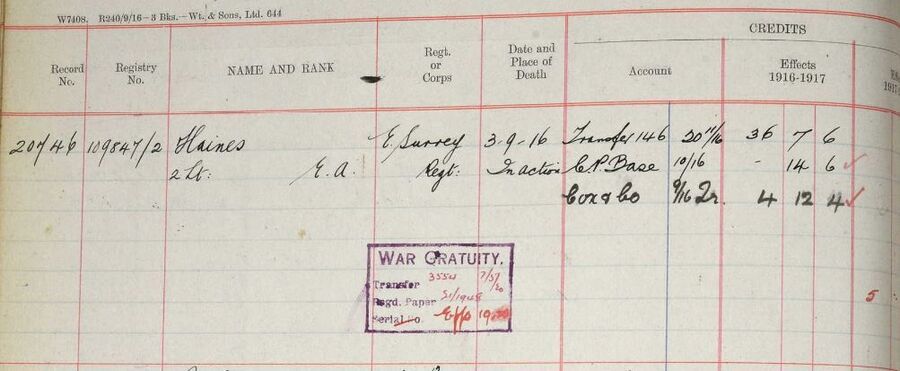 W7408. R240/9/16—3 Bks.—Wt. & Sons, Ltd. 644
CREDITS
Record No. Registry No. NAME AND RANK Regt. or Corps Date and Place of Death Account Effects 1916-1917
20746 109847/2 Haines E. Surrey 3-9-16 Transfer 146 30 11/16 36 7 6
2 Lt. E. A. Regt. In action C.P. Base 10/16 - 14 6
Cox & Co 9/16 Qr. 4 12 4
WAR GRATUITY.
Transfer 3554
Regd. Paper
Serial No. Effs
5